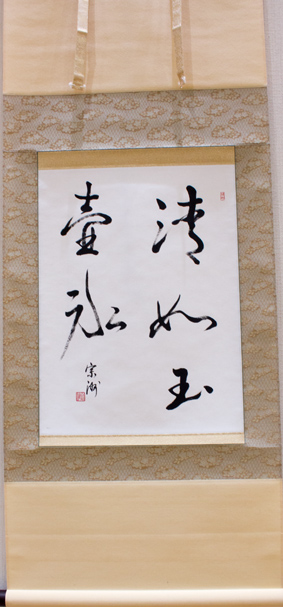 清如玉
壺氷
宗洲